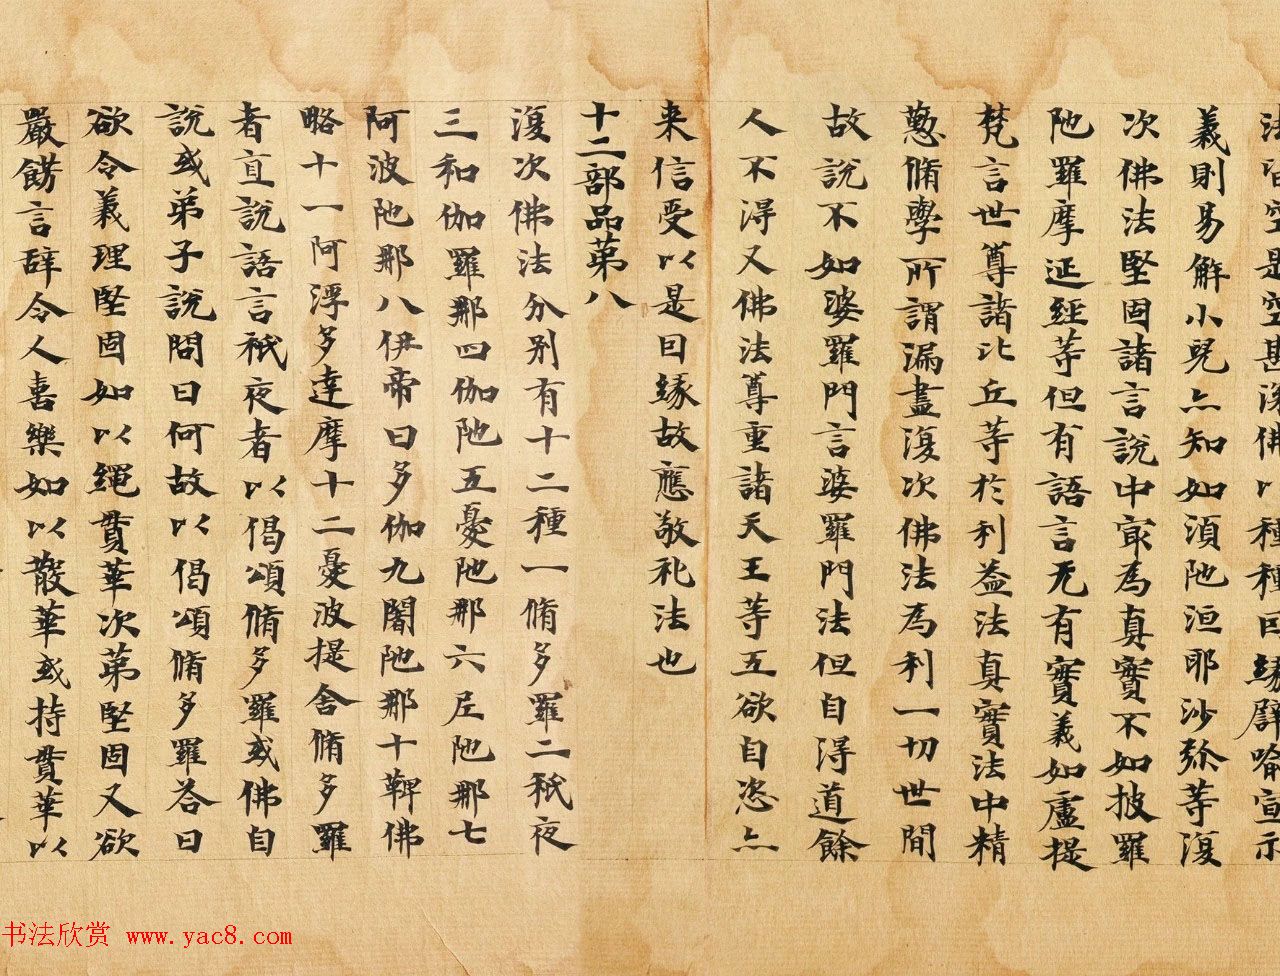 法皆空是空甚深佛以種種因緣譬喻宣示
義則易解小兒亦知如須陁洹耶沙弥等復
次佛法堅固諸言說中冣為真實不如披羅
陁羅摩延經等但有語言无有實義如盧提
梵言世尊諸比丘等於利益法真實法中精
懃脩學所謂漏盡復次佛法為利一切世間
故說不如婆羅門言婆羅門法但自得道餘
人不得又佛法尊重諸天王等五欲自恣亦
来信受以是因緣故應敬礼法也
十二部品第八
復次佛法分別有十二種一脩多羅二祇夜
三和伽羅那四伽陁五憂陁那六尼陁那七
阿波陁那八伊帝曰多伽九闍陁那十鞞佛
略十一阿浮多達摩十二憂波提舍脩多羅
者直說語言祇夜者以偈頌脩多羅或佛自
說或弟子說問曰何故以偈頌脩多羅荅曰
欲令義理堅固如以繩貫華次第堅固又欲
嚴餝言辭令人喜樂如以散華或持貫華以
书法欣赏 www.yac8.com